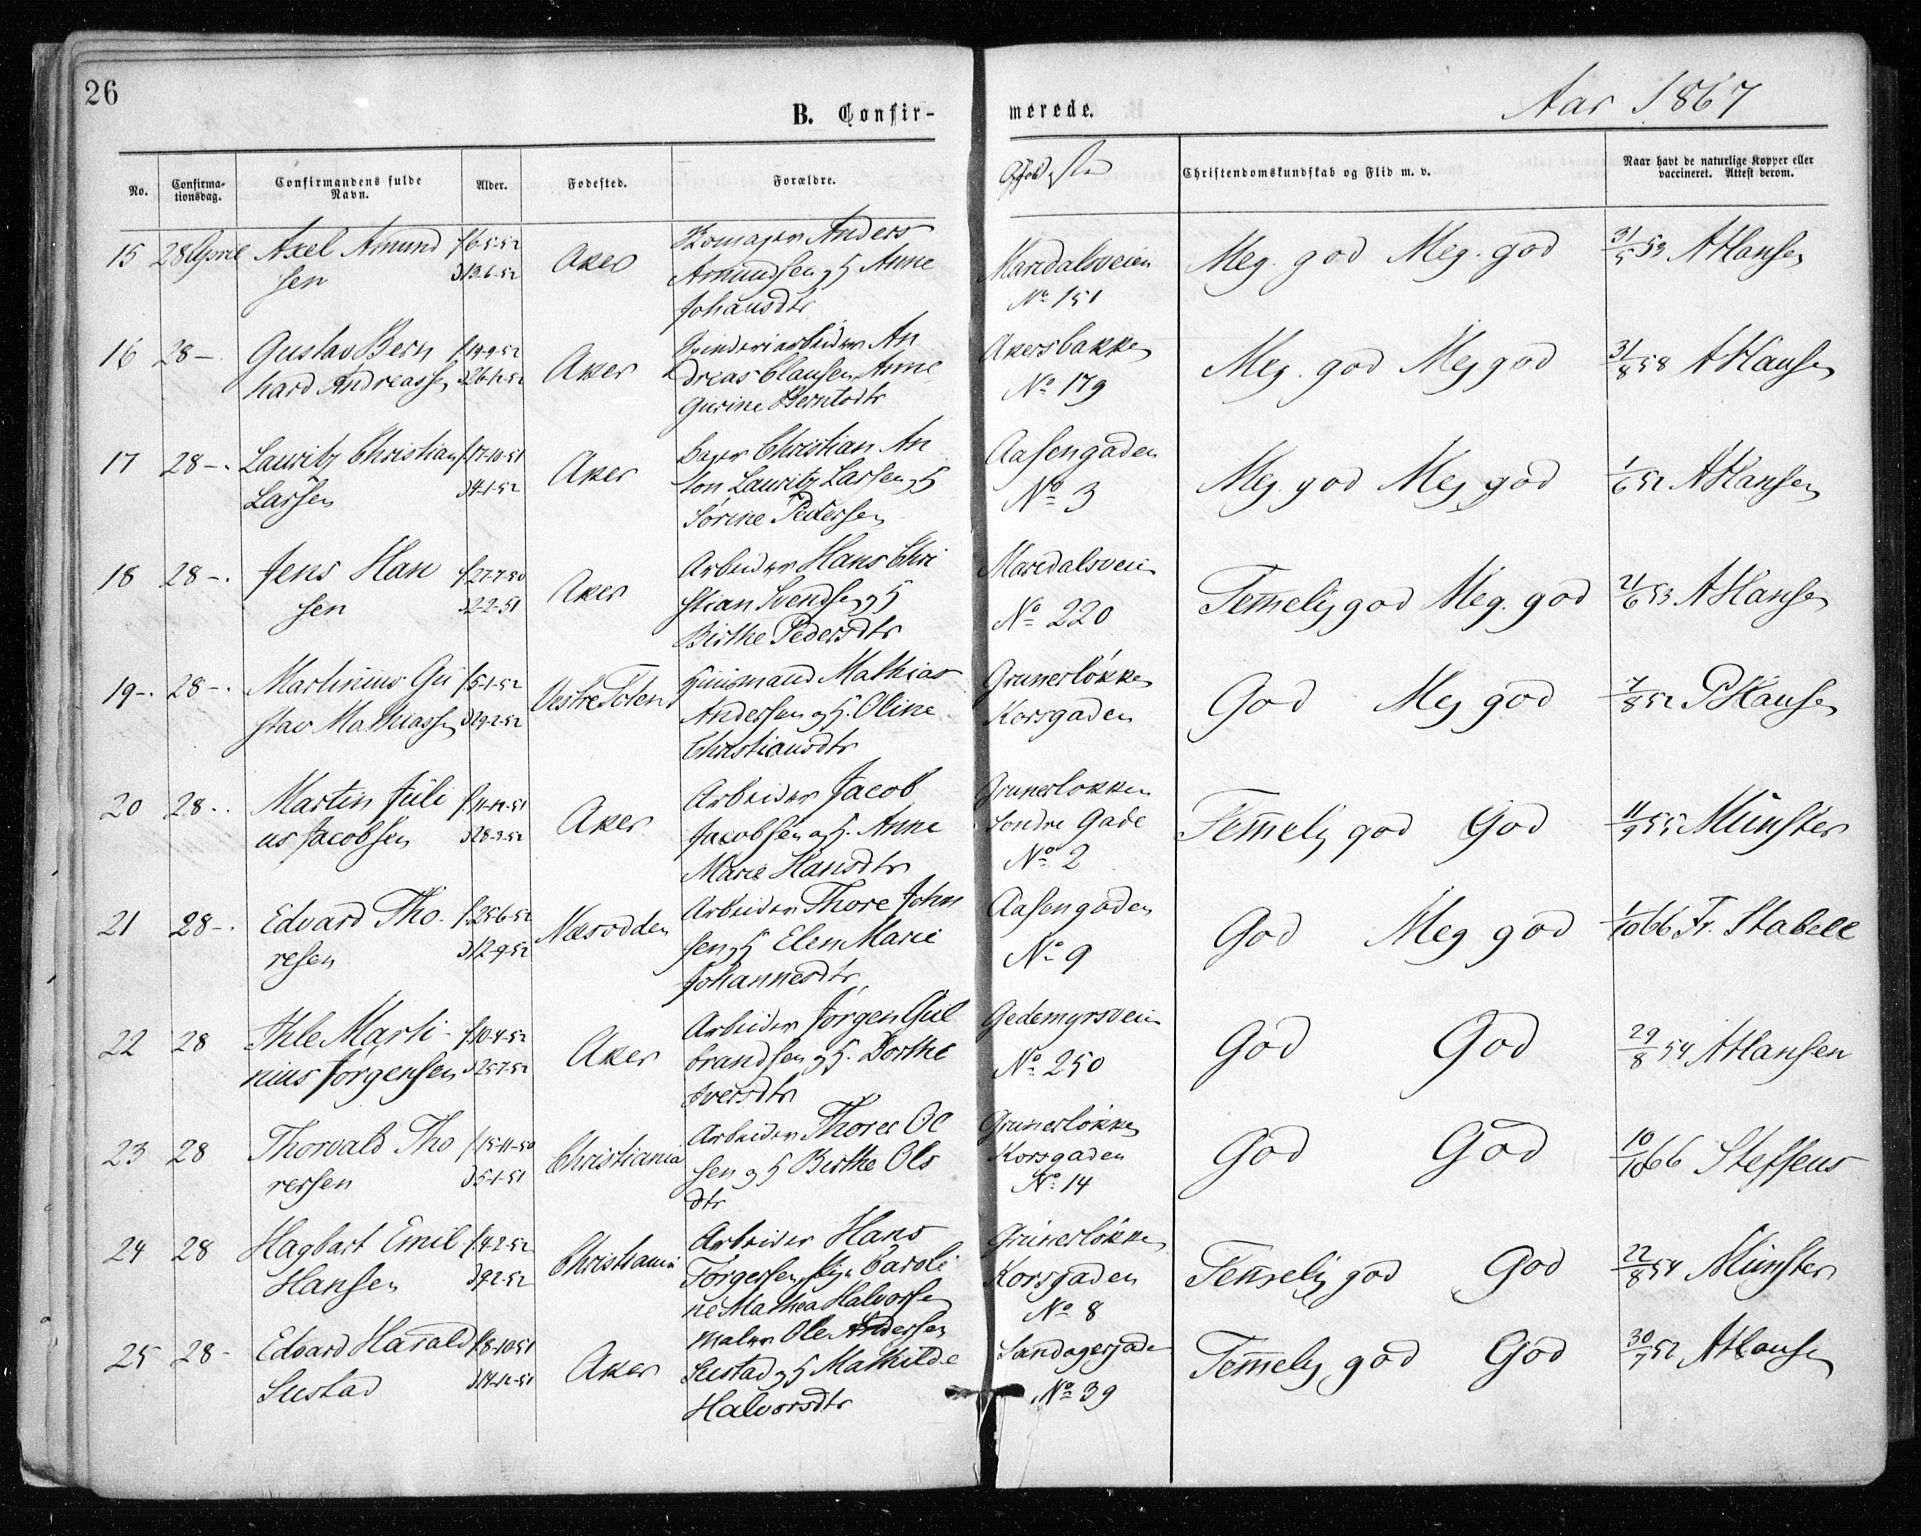 26
B. Confir-
merede.
Aar 1867
No.
Confirma-
tionsdag.
Confirmandens fulde
Navn.
Alder.
Fødested.
Forældre.
Christendomskundskab og Flid m. v.
Naar havt de naturlige Kopper eller
vaccineret. Attest derom.
15 28 April Axel Amund f 6-5-52 Anders
sen d 13-6-52 Aker Amundsen og H Anne Maridalsveien Meg. god Meg. god 31/5 53 A Hansen
Johansdtr No 151
16 28 - Gustav Bern f 14-9-52 arbeider An Akersbakken
hard Andreassen d 26-12-52 Aker dreas Clausen Anne No 179 Meg. god Meg god 31/8 58 A Hansen
Gurine Berntsdtr
17 28 -. Lauritz Christian f 17-10-51 Bager Christian An Aasengaden
Larsen d 4-1-52 Aker ton Lauritz Larsen og H No 3 Meg. god Meg god 1/6 52 A Hansen
Sørine Pedersen
18 28 -. Jens Han f 27-7-50 Arbeider Hans Chri Maridalsveien
sen d 2-2-51 Aker stian Svendsen og H No 220 Temelig god Meg. god 21/6 53 A Hansen
Birthe Pedersdtr
19 -. 28 -. Martinius Gu f 5-1-52 Huusmand Mathias Grunerløkken
stav Mathiassen d 29-2-52 Vestre Toten Andersen og H. Oline Korsgaden God Meg god 7/8 52 P Hansen
Christiansdtr
20 28 -. Martin Juli f. 11-12-51 Arbeider Jacob Grunerløkken
us Jacobsen d 28-3-52 Aker Jacobsen og H. Anne Søndre Gade Temelig god God 11/9 55 Münster
Marie Hansdtr No 2
21 28 -. Edvard Tho f. 25-6-52 Arbeider Thore John Aasengaden
resen d 12-9-52 Næsodden sen og H Elen Marie No 9 God Meg god 1/10 66 Fr. Stabell
Johannesdtr
22 28 Ihle Marti- f 10-4-52 Arbeider Jørgen Gul Gedemyrsveien
nius Jørgensen d 25-7-52 Aker brandsen og H. Dorthe No 250 God God 29/8 54 A Hansen
Iversdtr
23 28 Thorvald Tho f 15-11-50 Arbeider Thorer Ol Grunerløkken
rersen d 5-1-51 Christiania sen og H Birthe Ols Korsgaden God God 10/10 66 Steffens
dtr No 14
24 28 Hagbart Emil f. 4-2-52 Arbeider Hans Grunerløkken
Hansen d 9-2-52 Christiania Torgersen Caroli Korsgaden Temelig god God 22/8 54 Münster
ne Mathea Halvorsen No 8
25 28 - Edvard Harald f 8-10-51 Maler Ole Andersen
Sustad d 14-12-51 Aker Sustad og H Mathilde No 39 Temelig god God 30/7 52 A Hansen
Halvorsdtr